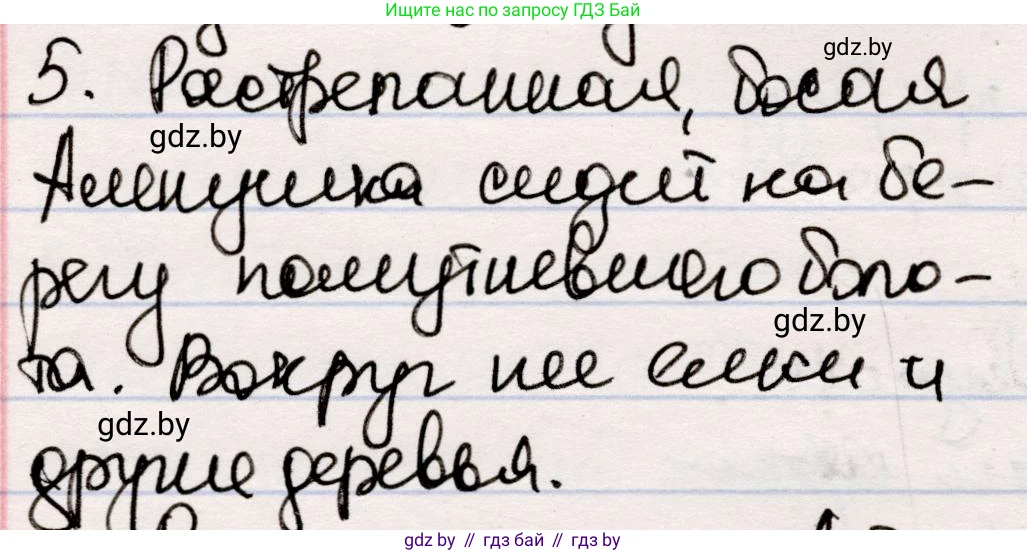 Ищите нас по запросу ГДЗ Бай
gdz.by
5. Растрепанная, босая
gdz.by
Аленушка сидит на бе-
регу помутневшего боло-
gdz.by
та. Вокруг нее елки и
gdz.by
другие деревья.
gdz.by // гдз бай // гдз by